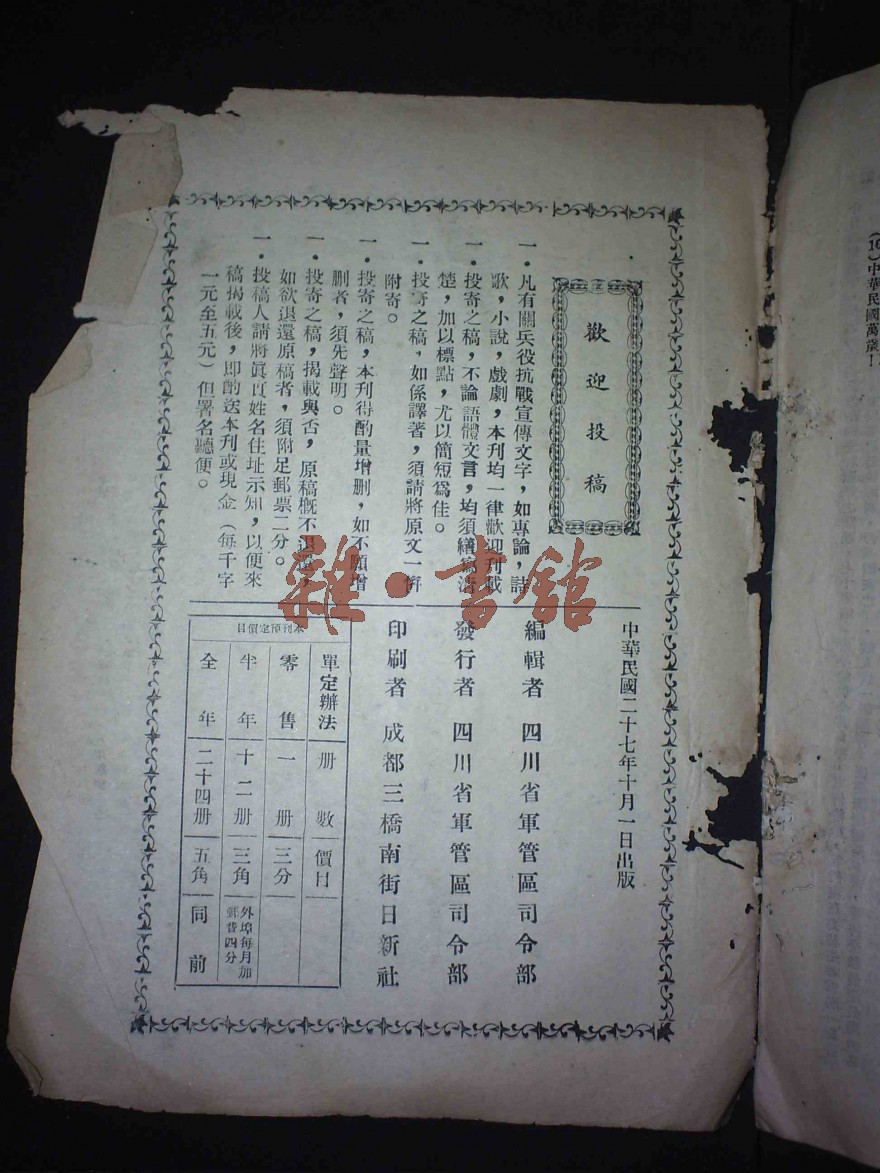 歡迎投稿
一•凡有關兵役抗戰宣傳文字，如專論，詩
歌，小說，戲劇，本刊均一律歡迎刊載
一•投寄之稿，不論語體文言，均須繕寫清
楚，加以標點，尤以簡短爲佳。
一•投寄之稿，如係譯著，須請將原文一併
附寄。
一•投寄之稿，本刊得酌量增刪，如不願增
刪者，須先聲明。
一•投寄之稿，揭載與否，原稿概不退還，
如欲退還原稿者，須附足郵票二分。
一•投稿人請將眞實姓名住址示知，以便來
稿揭載後，即酌送本刊或現金（每千字
一元至五元）但署名聽便。
中華民國二十七年十月一日出版
編輯者 四川省軍管區司令部
發行者 四川省軍管區司令部
印刷者 成都三橋南街日新社
本刊預定價目
單定辦法 册數 價目
零售 一册 三分
半年 十二册 三角 外埠每月加
郵費四分
全年 二十四册 五角 同前
雜•書館
中華民國萬歲！